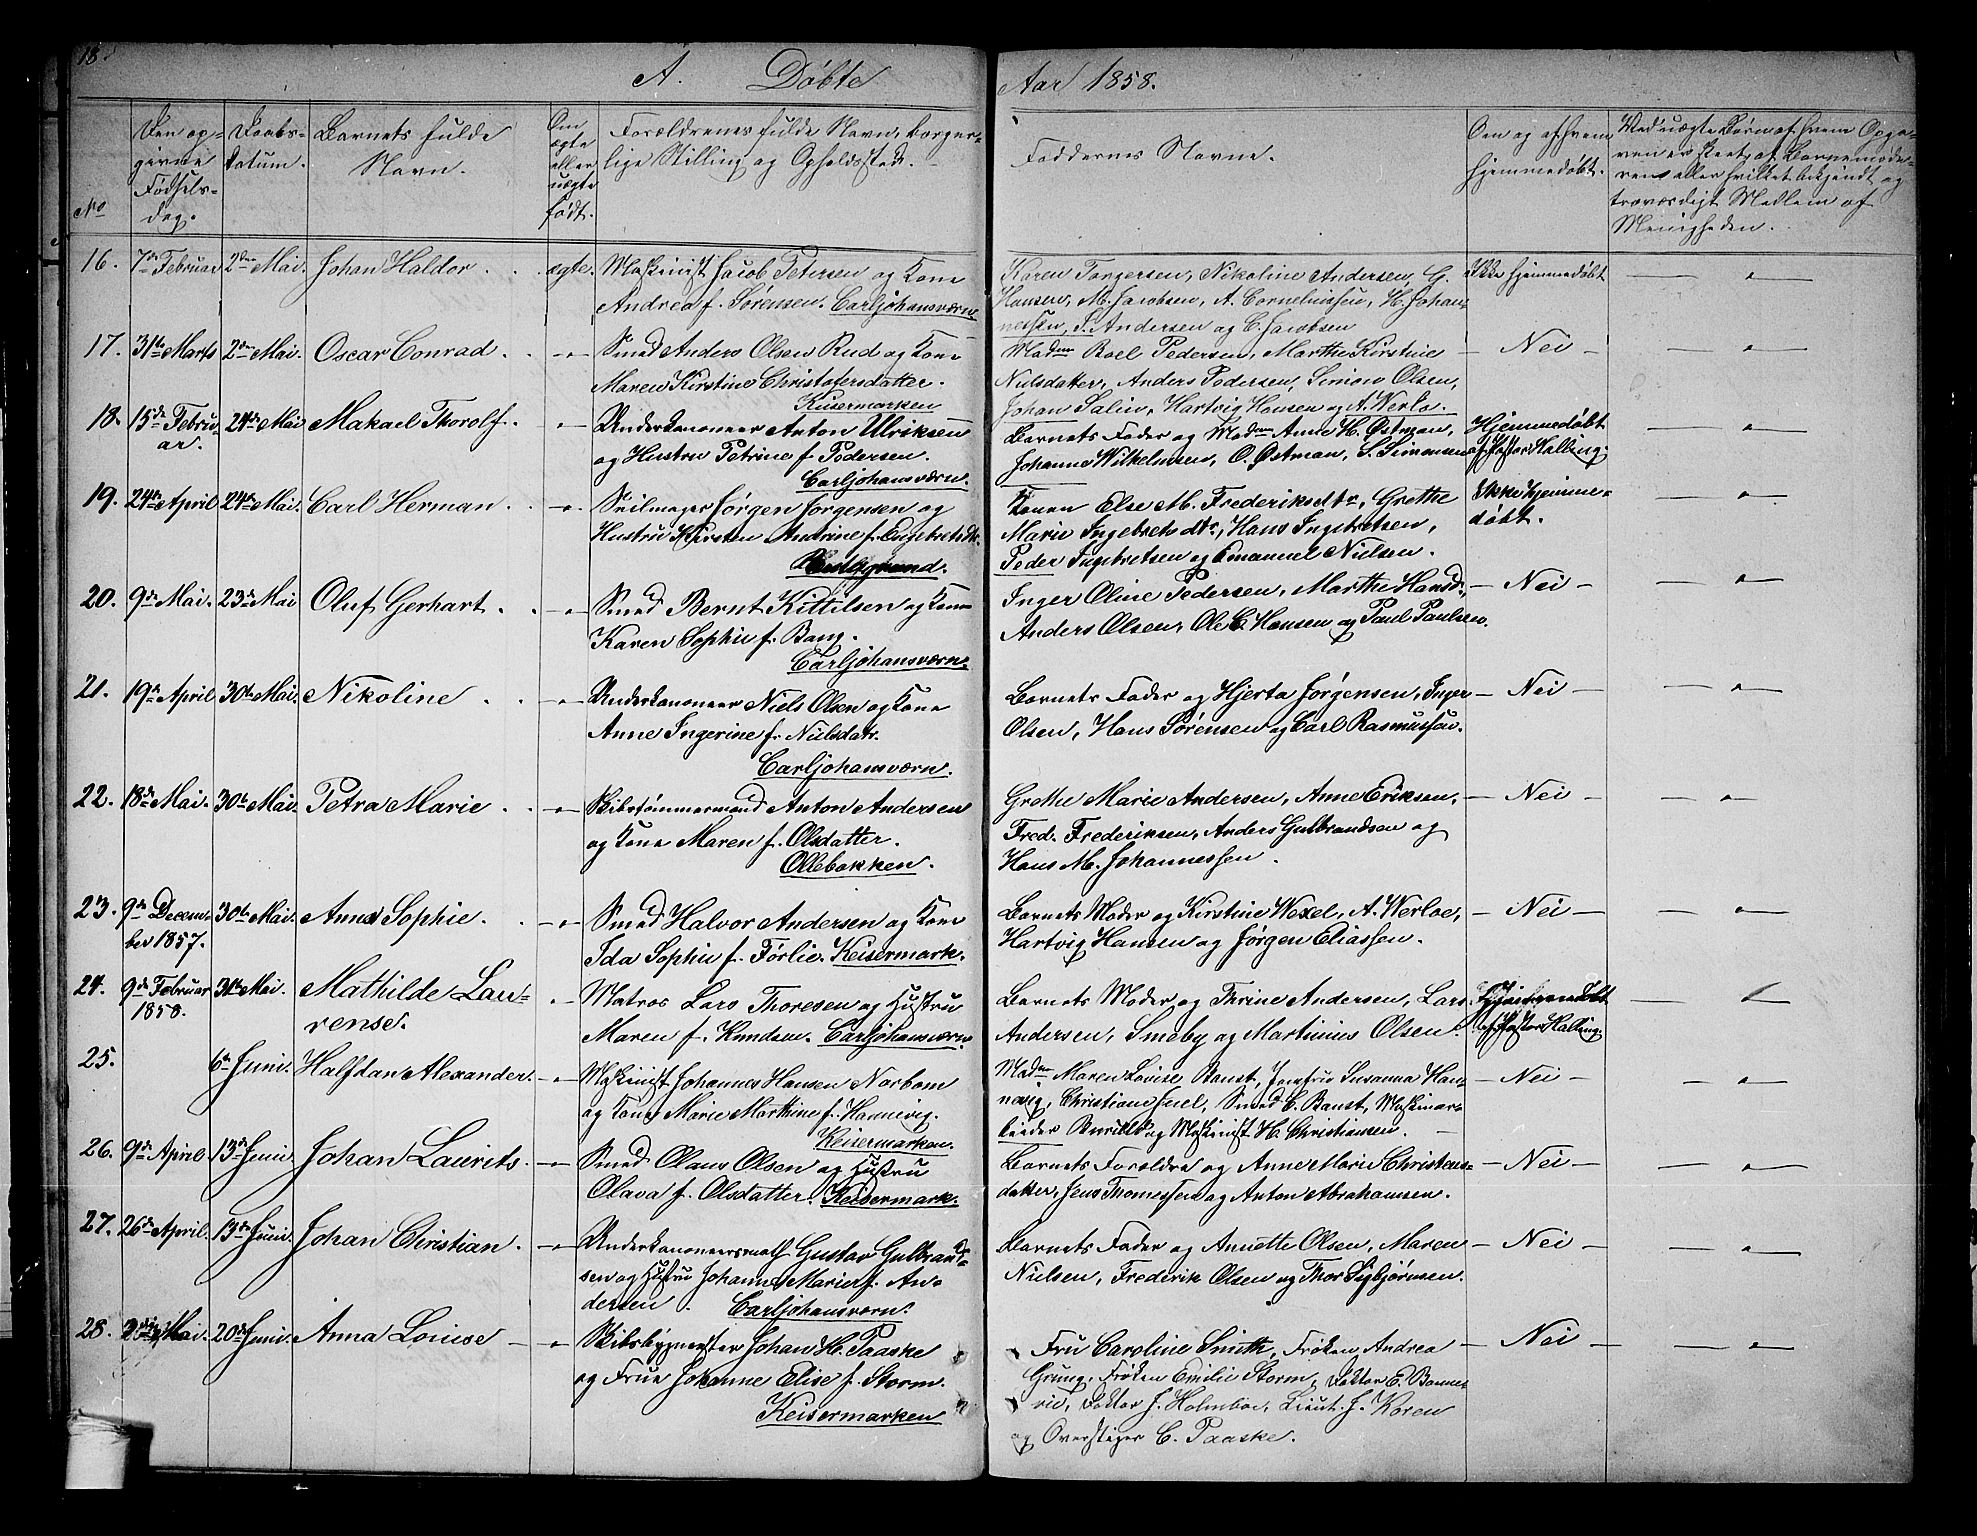 18.
A. Døbte
Aar 1858.
No
Den op-
givne
Fødsels-
dag.
Daabs-
datum.
Barnets fulde
Navn.
Om
ægte
eller
uægte
født.
Forældrenes fulde Navn, borger-
lige Stilling og Opholdssted.
Faddernes Navne.
Om og af hvem
hjemmedøbt.
Ved uægte Børn af hvem Opga-
ven er skeet, af Barnemode-
ren eller hvilket bekjendt og
troværdigt Medlem af
Menigheden.
16. 7de Februar 2den Mai. Johan Haldor. ægte. Maskinist Jacob Petersen og Kone
Andrea f. Sørensen. Carljohansværn.
Karen Torgersen, Nikoline Andersen, G.
Hansen, M. Jacobsen, A. Corneliussen, H. Johan-
nessen, S. Andersen og C. Jacobsen
Ikke hjemmedøbt
17. 31te Marts 2den Mai. Oscar Conrad. Smed Anders Olsen Rud og Kone
Maren Kirstine Christofersdatter.
Keisermarken
Madm Boel Pedersen, Marthe Kirstine
Nielsdatter, Anders Pedersen, Simon Olsen,
Johan Salin, Hartvig Hansen og A. Werlo.
Nei
18. 15de Febru-
ar. 24de Mai Makael Thorolf. Underkanoneer Anton Ulriksen
og Hustru Petrine f. Pedersen.
Carljohansværn.
Barnets Fader og Madm Anne H. Østman,
Johanne Wilhelmsen, O. Østman, S. Simonsen
Hjemmedøbt
af Pastor Halling.
19. 24de April 24de Mai. Carl Herman. Seilmager Jørgen Jørgensen og
Hustru Kirsten Andrine f. Engebretsdtr.
Konen Else M. Frederiksdtr, Grethe
Marie Ingebretsdtr, Hans Ingebretsen,
Peder Ingebretsen og Emanuel Nielsen.
Ikke hjemme-
døbt.
20. 9de Mai. 23de Mai Oluf Gerhart. Smed Bernt Kittilsen og Kone
Karen Sophie f. Bang.
Carljohansværn.
Inger Oline Pedersen, Marthe Hansd.,
Anders Olsen, Ole C. Hansen og Paul Paulsen.
Nei
21. 19de April 30te Mai. Nikoline. Underkanoneer Niels Olsen og Kone
Anne Ingerine f. Nielsdatr.
Carljohansværn.
Barnets Fader og Hjerta Jørgensen, Inger
Olsen, Hans Sørensen og Carl Rasmussen.
Nei
22. 18de Mai. 30te Mai. Petra Marie. Skibstømmermand Anton Andersen
og Kone Maren f. Olsdatter.
Ollebakken.
Grethe Marie Andersen, Anne Eriksen,
Fred. Frederiksen, Anders Gulbrandsen og
Hans M. Johannessen.
Nei
23. 9de Decem-
ber 1857. 30te Mai. Anna Sophie. Smed Halvor Andersen og Kone
Ida Sophie f. Førlie. Keisermark.
Barnets Moder og Kirstine Wexel, A. Werloe,
Hartvig Hansen og Jørgen Eliassen.
Nei
24. 9de Februar
1858. 31te Mai. Mathilde Lau-
rense. Matros Lars Thoresen og Hustru
Maren f. Knudsen. Carljohansværn.
Barnets Moder og Thrine Andersen, Lars
Andersen, Smeby og Martinius Olsen.
Hjemmedøbt
af Pastor Halling.
25. 6te Juni. Halfdan Alexander. Maskinist Johannes Hansen Norbom
og Kone Marie Marthine f. Hannevig.
Keisermarken.
Madm Maren Lovise Banst, Jomfru Susanna Han-
nevig, Christiane Juel, Smed C. Banst, Maskinar-
beider og Maskinist H. Christiansen.
Nei
26. 9de April 13de Juni. Johan Laurits. Smed Olaus Olsen og Hustru
Olava f. Olsdatter. Keisermark.
Barnets Forældre og Anne Marie Christens-
datter, Jens Thomessen og Anton Abrahamsen.
Nei
27. 26de April. 13de Juni. Johan Christian. Underkanoneersmath Gustav Gulbrand-
sen og Hustru Johanne Marie f. An-
dersen. Carljohansværn.
Barnets Fader og Annette Olsen, Maren
Nielsen, Frederik Olsen og Thor Sigbjørnsen.
Nei
28. Mai. 20de Juni. Anna Louise Skibsbygmester Johan H. Paaske
og Frue Johanne Elise f. Storm.
Keisermarken
Fru Caroline Smith, Frøken Andrea
Grung, Frøken Emilie Storm, Doktor E. Bonne-
vie, Doktor J. Holmboe, Lieut. J. Koren
og Overstiger C. Paaske.
Nei